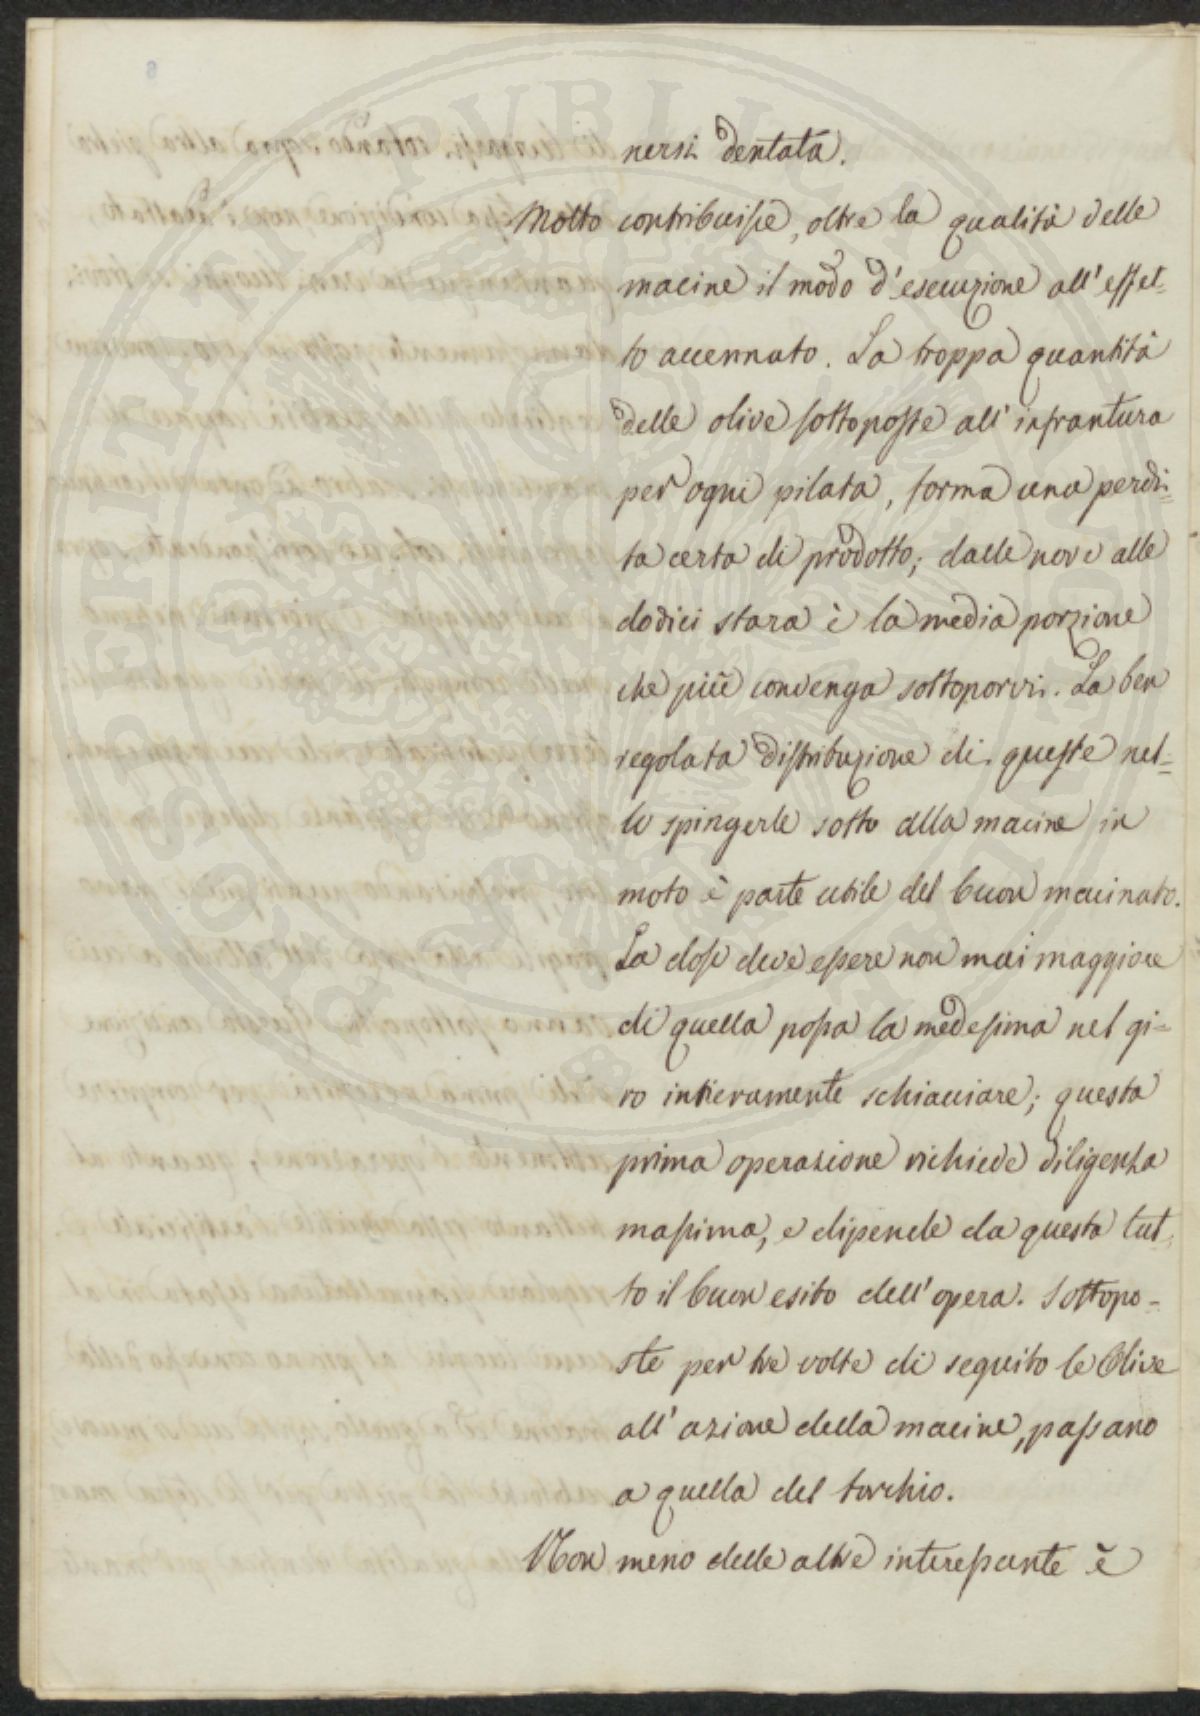 nersi dentata.
Molto contribuisce, oltre la qualità delle
macine il modo d'esecuzione all'effet=
to accennato. La troppa quantità
delle olive sottoposte all'infrantura
per ogni pilata, forma una perdi=
ta certa di prodotto; dalle nove alle
dodici stara è la media porzione
che più convenga sottoporvi. La ben
regolata distribuzione di queste nel=
lo spingerle sotto alla macine in
moto è parte utile del buon macinato.
La dose deve essere non mai maggiore
di quella possa la medesima nel gi=
ro intieramente schiacciare; questa
prima operazione richiede diligenza
massima, e dipende da questa tut=
to il buon esito dell'opera. Sottopo=
ste per tre volte di seguito le Olive
all'azione della macine, passano
a quella del torchio.
Non meno delle altre interessante è